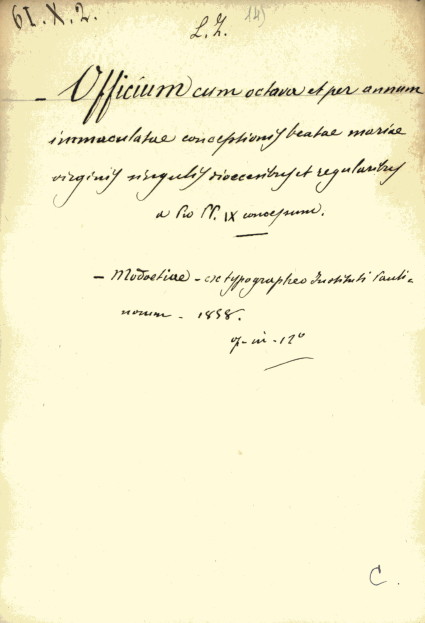 61.X.2.
14)
L. Z.
- Officium cum octava et per annum
immaculatae conceptionis beatae mariae
virginis singulis dioecesibus et regularibus
a Pio PP. IX concessum.
- Modoetiae - ex typographeo Instituti Pauli-
norum - 1858.
op- in - 12°
C.